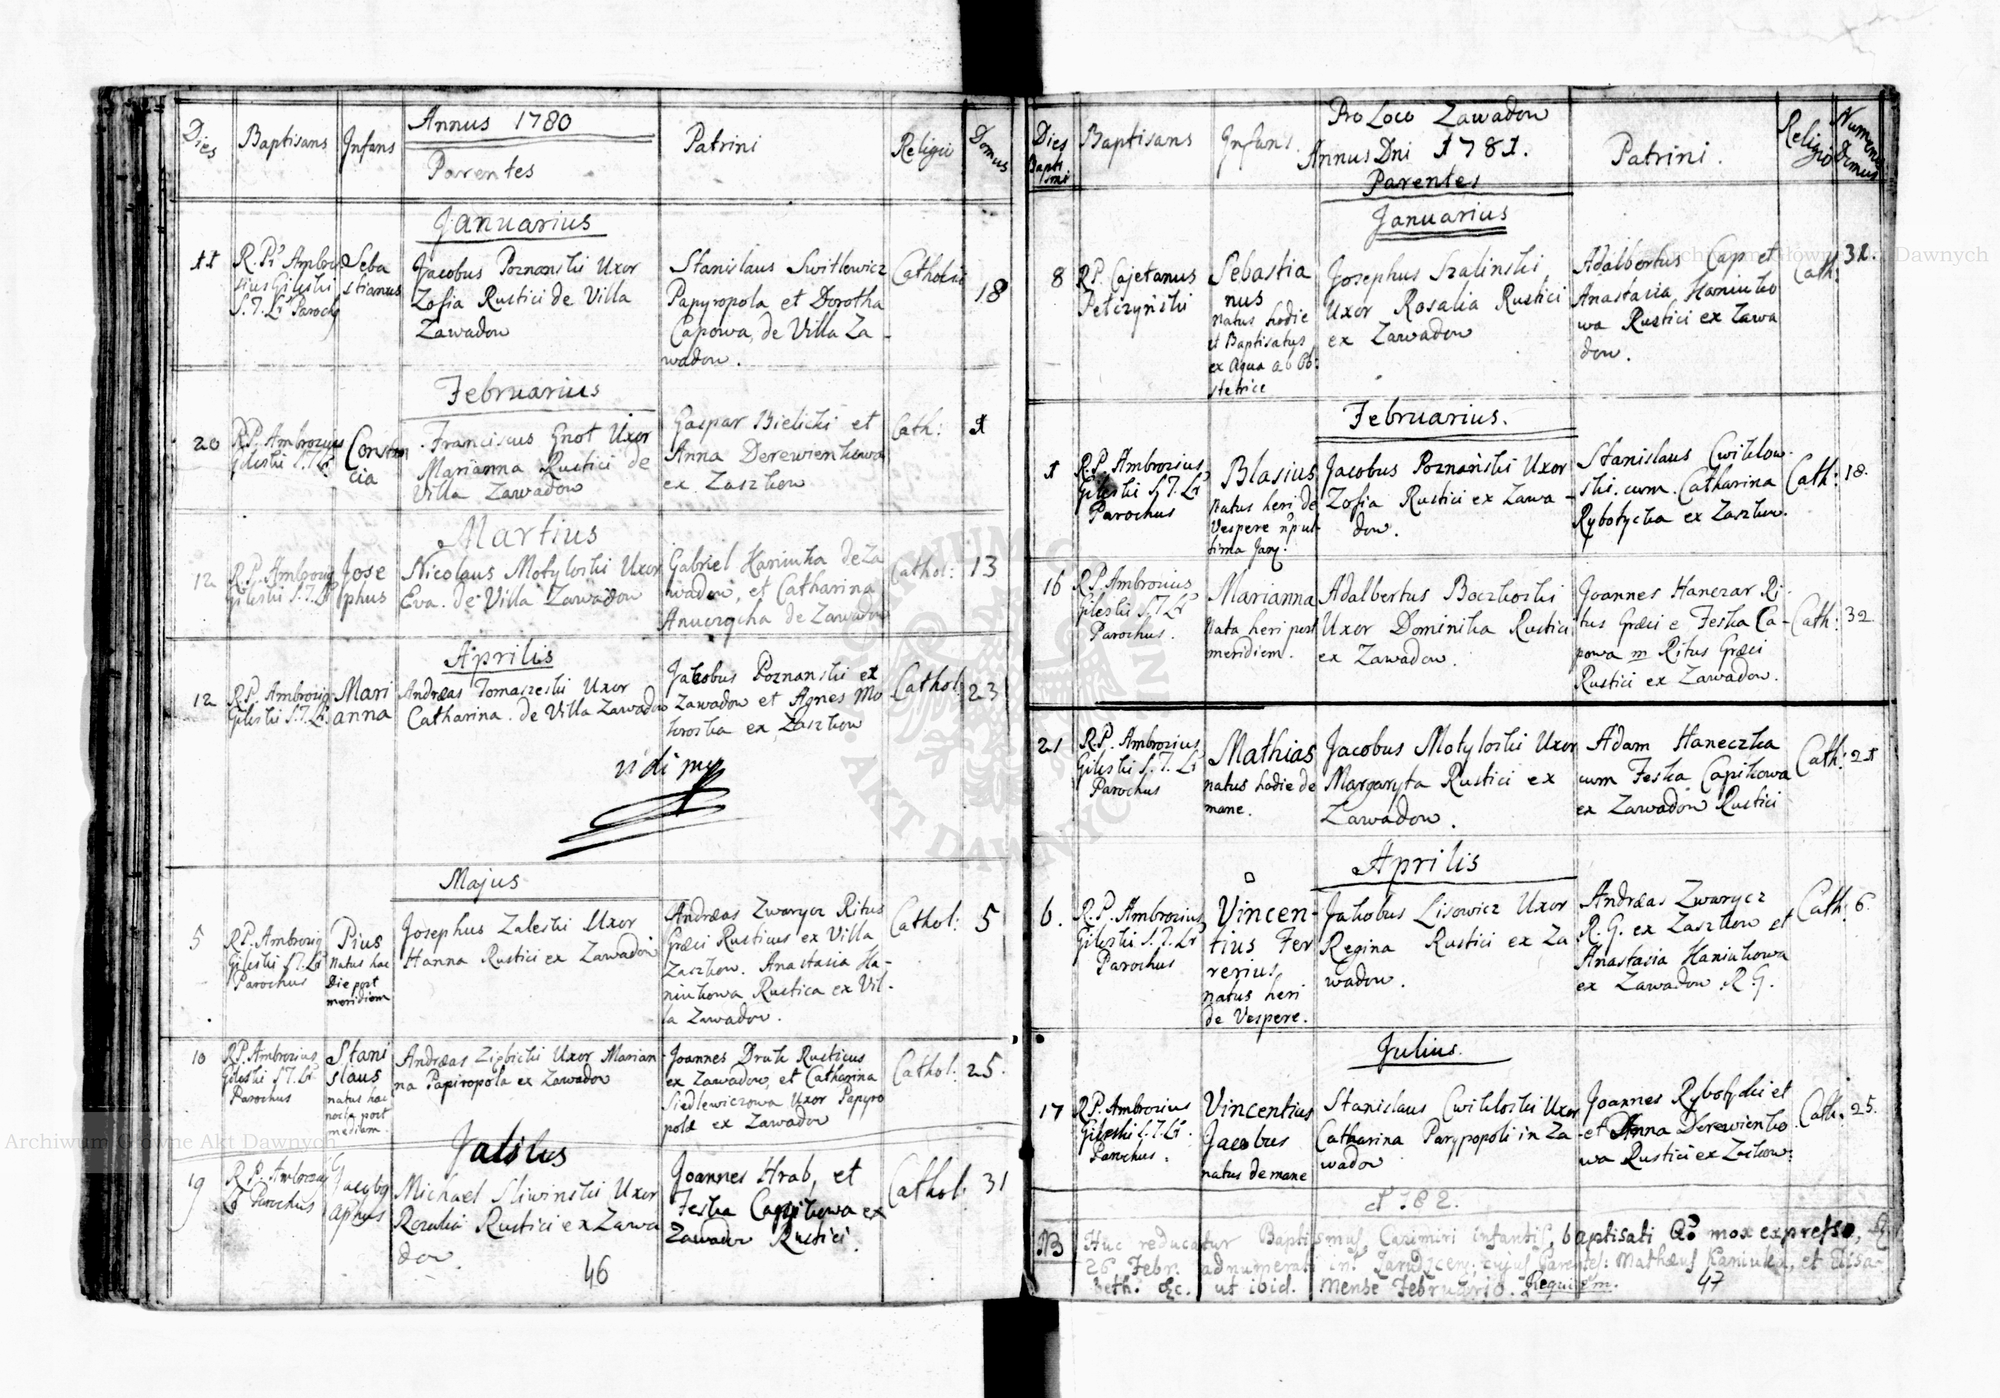 Dies
Baptisans
Infans
Annus 1780
Parentes
Patrini
Religio
Domus
Januarius
11
R. P. Ambro
sius Gileski
S. T. Lr Paroch
Seba
stianus
Jacobus Poznanski Uxor
Zofia Rustici de Villa
Zawadow
Stanislaus Switlewicz
Papyropola et Dorotha
Capowa, de Villa Za-
wadow.
Catholici
18
Februarius
20
R. P. Ambrozius
Gileski S. T. Lr.
Constan
cia
Franciscus Gnot Uxor
Marianna Rustici de
Villa Zawadow
Gaspar Bielicki et
Anna Derewienkowa
ex Zaszkow
Cath:
1
Martius
12
R. P. Ambrozig
Gileskii S. T. Lr
Jose
phus
Nicolaus Motyloski Uxor
Eva. de Villa Zawadow
Gabriel Haniuka de Za
wadow, et Catharina
de Zawadow
Cathol:
13
Aprilis
12
R. P. Ambrozig
Gileski S. T. Lr.
Mari
anna
Andræas Tomaszeski Uxor
Catharina. de Villa Zawadow
Jakobus Poznanski ex
Zawadow et Agnes Mo
kroska ex Zaszkow
Cathol:
23
vidi
Majus
5
R. P. Ambrozig
Gileski S. T. Lr
Parochus
Pius
natus hac
die post
meridiem
Josephus Zaleski Uxor
Hanna Rustici ex Zawadow
Andræas Zwarycz Ritus
Græci Rusticus ex Villa
Zaszkow. Anastasia Ha-
niukowa Rustica ex Vil-
la Zawadow.
Cathol:
5
10
R. P. Ambrozius
Gileski S. T. Lr
Parochus
Stani
slaus
natus hac
nocte post
mediam
Andræas Zięblicki Uxor Marian
na Papiropola ex Zawadow
Joannes Druk Rusticus
ex Zawadow, et Catharina
Siedlewiczowa Uxor Papyro
polæ ex Zawadow
Cathol:
25.
Julius
19
R. P. Ambrozig
Parochus
Jacobg
Michael Sliwinski Uxor
Rozalia Rustici ex Zawa
dow.
Joannes Hrab, et
Feska Capikowa ex
Zawadow Rustici.
Cathol:
31
46
Dies
Bapti
smi
Baptisans
Infans.
Pro Loco Zawadow
Annus Dni 1781.
Parentes
Patrini.
Religio
Numerus
Domus
Januarius
8
R. P. Cajetanus
Pełczyński
Sebastia
nus
natus hodie
et Baptisatus
ex Aqua ab Ob-
stetrice
Josephus Szalinski
Uxor Rosalia Rustici
ex Zawadow
Adalbertus Cap et
Anastasia Haniuko
wa Rustici ex Zawa
dow.
Cath:
31.
Februarius.
1
R. P. Ambrozius
Gileski S. T. Lr
Parochus
Blasius
natus heri de
Vespere ul-
tima Jany.
Jacobus Poznański Uxor
Zofia Rustici ex Zawa-
dow.
Stanislaus Cwiklow-
ski. cum. Catharina
Rybotycka ex Zaszkow.
Cath:
18.
16
R. P. Ambrozius
Gileski S. T. Lr
Parochus.
Marianna
Nata heri post
meridiem.
Adalbertus Boczkoski
Uxor Dominika Rustici
ex Zawadow.
Joannes Hanczar Ri-
tus Græci e Feska Ca-
powa Ritus Græci
Rustici ex Zawadow.
Cath:
32
21
R. P. Ambrozius
Gileski S. T. Lr
Parochus
Mathias
natus hodie de
mane.
Jacobus Motyloski Uxor
Margaryta Rustici ex
Zawadow.
Adam Haneczka
cum Feska Capikowa
ex Zawadow Rustici
Cath:
21
Aprilis
6.
R. P. Ambrozius
Gileski S. T. Lr
Parochus
Vincen-
tius Fer
rerius,
natus heri
de Vespere.
Jakobus Lisowicz Uxor
Regina Rustici ex Za
wadow.
Andræas Zwarycz
R. G. ex Zaszkow et
Anastasia Haniukowa
ex Zawadow R. G.
Cath:
6.
Julius.
17
R. P. Ambrozius
Gileski S. T. Lr.
Parochus.
Vincentius
Jacobus
natus de mane
Stanislaus Cwikloski Uxor
Catharina Parypopoli in Za-
wadow
Joannes Rybotycki et
et Anna Derewienko
wa Rustici ex Zaszkow.
Cath:
25.
1782.
NB
Huc reducatur Baptismus Casimiri infantis, baptisati mox expresso,
26 Febr. adnumerati in Zarudcem, cujus Parentes: Mathæus Haniuka, et Elisa-
beth. &c. ut ibid. Mense Februario. Requiem.
47
Archiwum Główne Akt Dawnych
Archiwum Główne Akt Dawnych